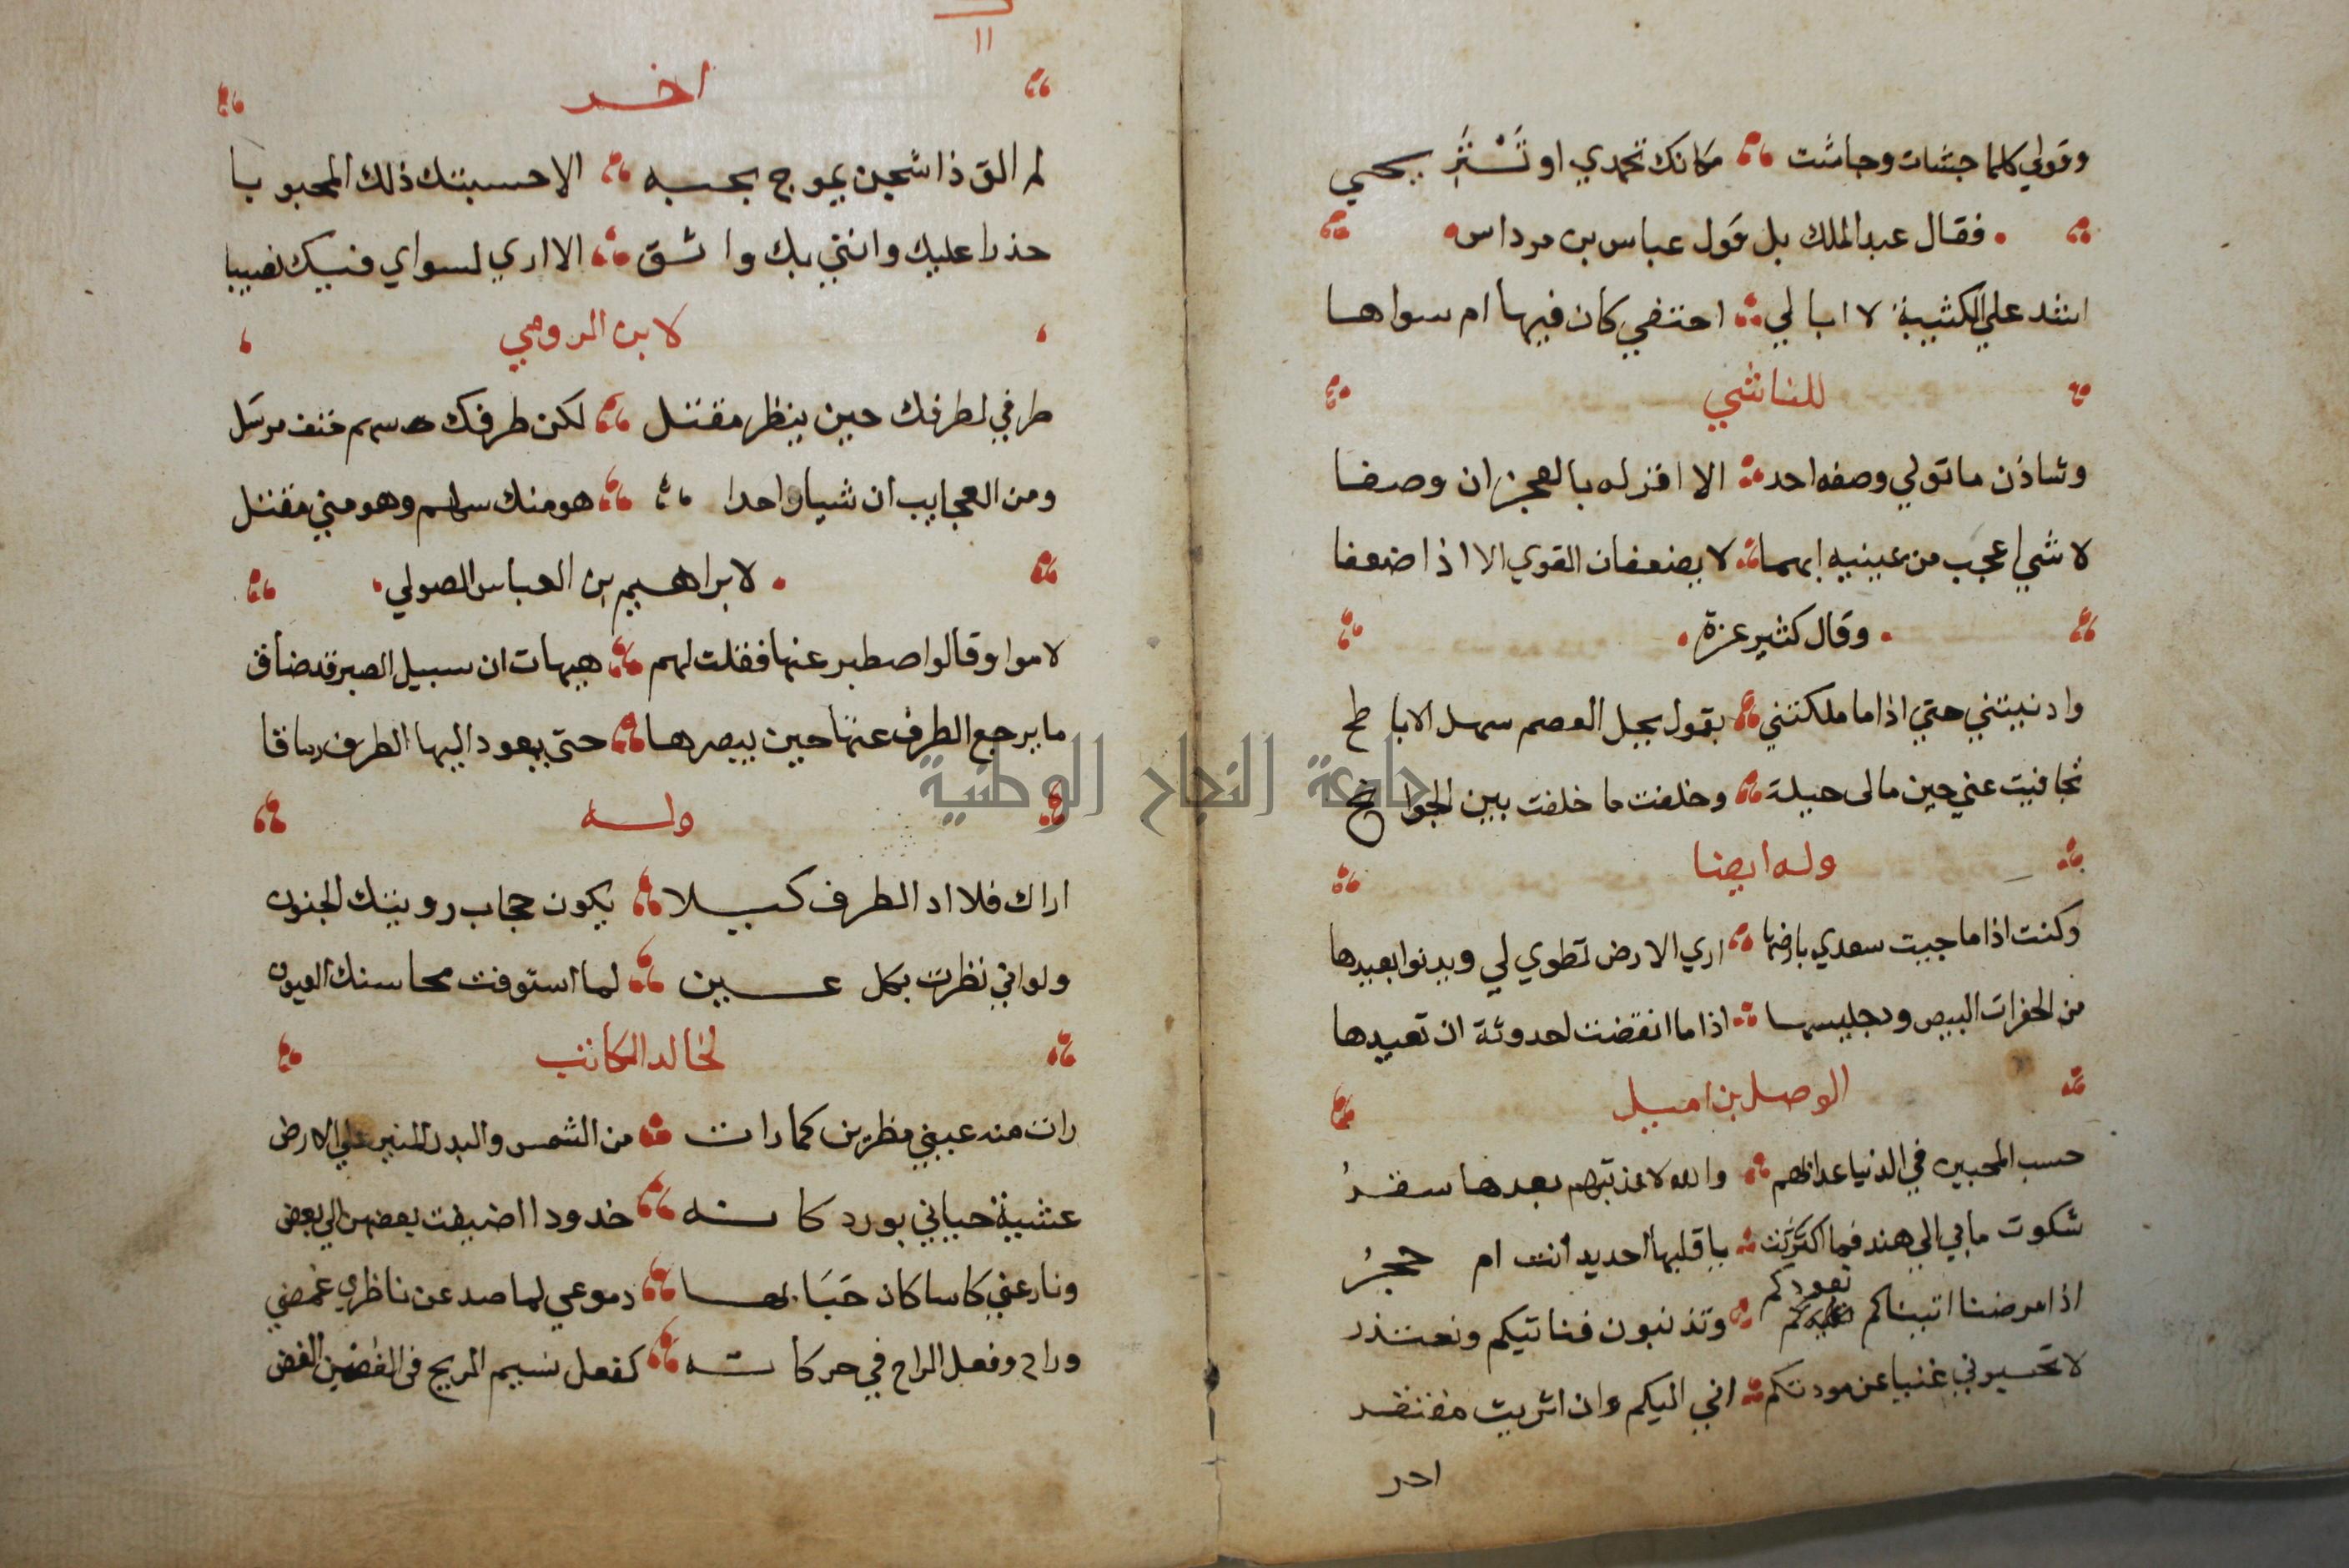 وقولي كلما جشات وجاشت مكانك تحمدي او تستريحي
فقال عبد الملك بل قول عباس بن مرداس
اشد علي الكثيبة لا ابالي احتفي كان فيها ام سواها
للناشي
وشاذن ما تولي وصفه احد الا اقر له بالعجز ان وصفا
لا شي اعجب من عينيه انهما لا يضعفان القوي الا اذا ضعفا
وقال كثير عزة
وادنيتني حتي اذا ما ملكتني بقول يحل العصم سهل الاباطح
تجافيت عني حين مالى حيلة وخلفت ما خلفت بين الجوانح
وله ايضا
وكنت اذا ما جيت سعدي بارضها اري الارض تطوي لي ويدنوا بعيدها
من الخفرات البيض ود جليسها اذا ما انقضت احدوثة ان تعيدها
الوصل بن اميل
حسب المحبين في الدنيا عذابهم والله لا عذبتهم بعدها سقر
شكوت ما بي الي هند فما اكترثت يا قلبها احديد أنت ام حجر
نعودكم
اذا مرضنا اتيناكم وتذنبون فناتيكم ونعتذر
لا تحسبوني غنيا عن مودتكم اني اليكم وان اثريت مفتقر
اخر
١١
اخر
لم الق ذا شجن يموج بحبه الا حسبتك ذلك المحبوبا
حذرا عليك وانني بك واثق الا اري لسواي فيك نصيبا
لابن الرومي
طرفي لطرفك حين ينظر مقتل لكن طرفك سهم حتف مرسل
ومن العجايب ان شيا واحدا هو منك سهم وهو مني مقتل
لابراهيم بن العباس الصولي
لاموا وقالوا اصطبر عنها فقلت لهم هيهات ان سبيل الصبر قد ضاق
ما يرجع الطرف عنها حين يبصرها حتى يعود اليها الطرف
وله
اراك فلا ارد الطرف كيلا يكون حجاب رويتك الجفون
ولو اني نظرت بكل عين لما استوفت محاسنك العيون
لخالد الكاتب
رات منه عيني منظرين كما رات من الشمس والبدر المنير علي الارض
عشية حياني بورد كانه خدود اضيفت بعضهن الي بعض
ونازعني كاسا كان حبابها دموعي لما صد عن ناظري غمضي
وراح وفعل الراح في حركاته كفعل نسيم الريح في الغصن الغض
جامعة النجاح الوطنية